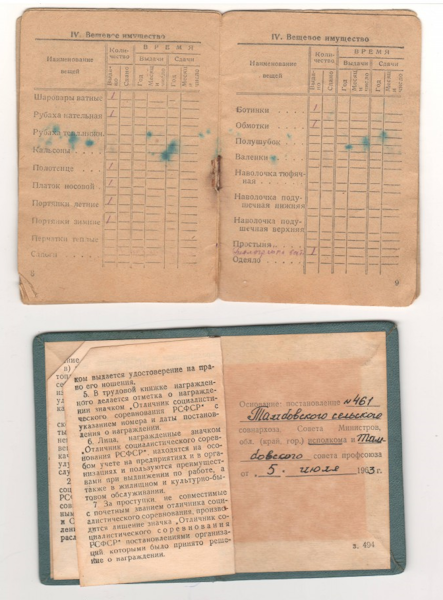 IV. Вещевое имущество
Наименование
вещей
Коли-
чество
ВРЕМЯ
Выдачи
Сдачи
Год
Месяц и число
Год
Шаровары ватные 1
Рубаха нательная 1
Рубаха теплая
Кальсоны
Полотенце 1
Платок носовой 1
Портянки летние 1
Портянки зимние 1
Перчатки теплые
8
IV. Вещевое имущество
Наименование
вещей
Коли-
чество
ВРЕМЯ
Выдачи
Сдачи
Год
Год
Ботинки 1
Обмотки 1
Полушубок
Валенки
Наволочка тюфяч-
ная
Наволочка поду-
шечная нижняя
Наволочка поду-
шечная верхняя
Простыня
Одеяло
9
ком выдается удостоверение на пра-
во его ношения.
5. В трудовой книжке награжден-
ного делается отметка о награжде-
нии значком „Отличник социалисти-
ческого соревнования РСФСР“ с
указанием номера и даты постанов-
ления о награждении.
6. Лица, награжденные значком
„Отличник социалистического сорев-
нования РСФСР“, находятся на осо-
бом учете на предприятиях и в орга-
низациях и пользуются преимущест-
вами при выдвижении по работе, а
также в жилищном и культурно-бы-
товом обслуживании.
7 За проступки, не совместимые
с почетным званием отличника социа-
листического соревнования, произво-
дится лишение значка „Отличник со-
циалистического соревнования
РСФСР“ постановлениями организа-
ций которыми было принято реше-
ние о награждении.
Основание: постановление №461
Тамбовского сельского
совнархоза, Совета Министров,
обл. (край, гор.) исполкома и Там-
бовского совета профсоюза
от „5“ июля 1963 г.
з. 494